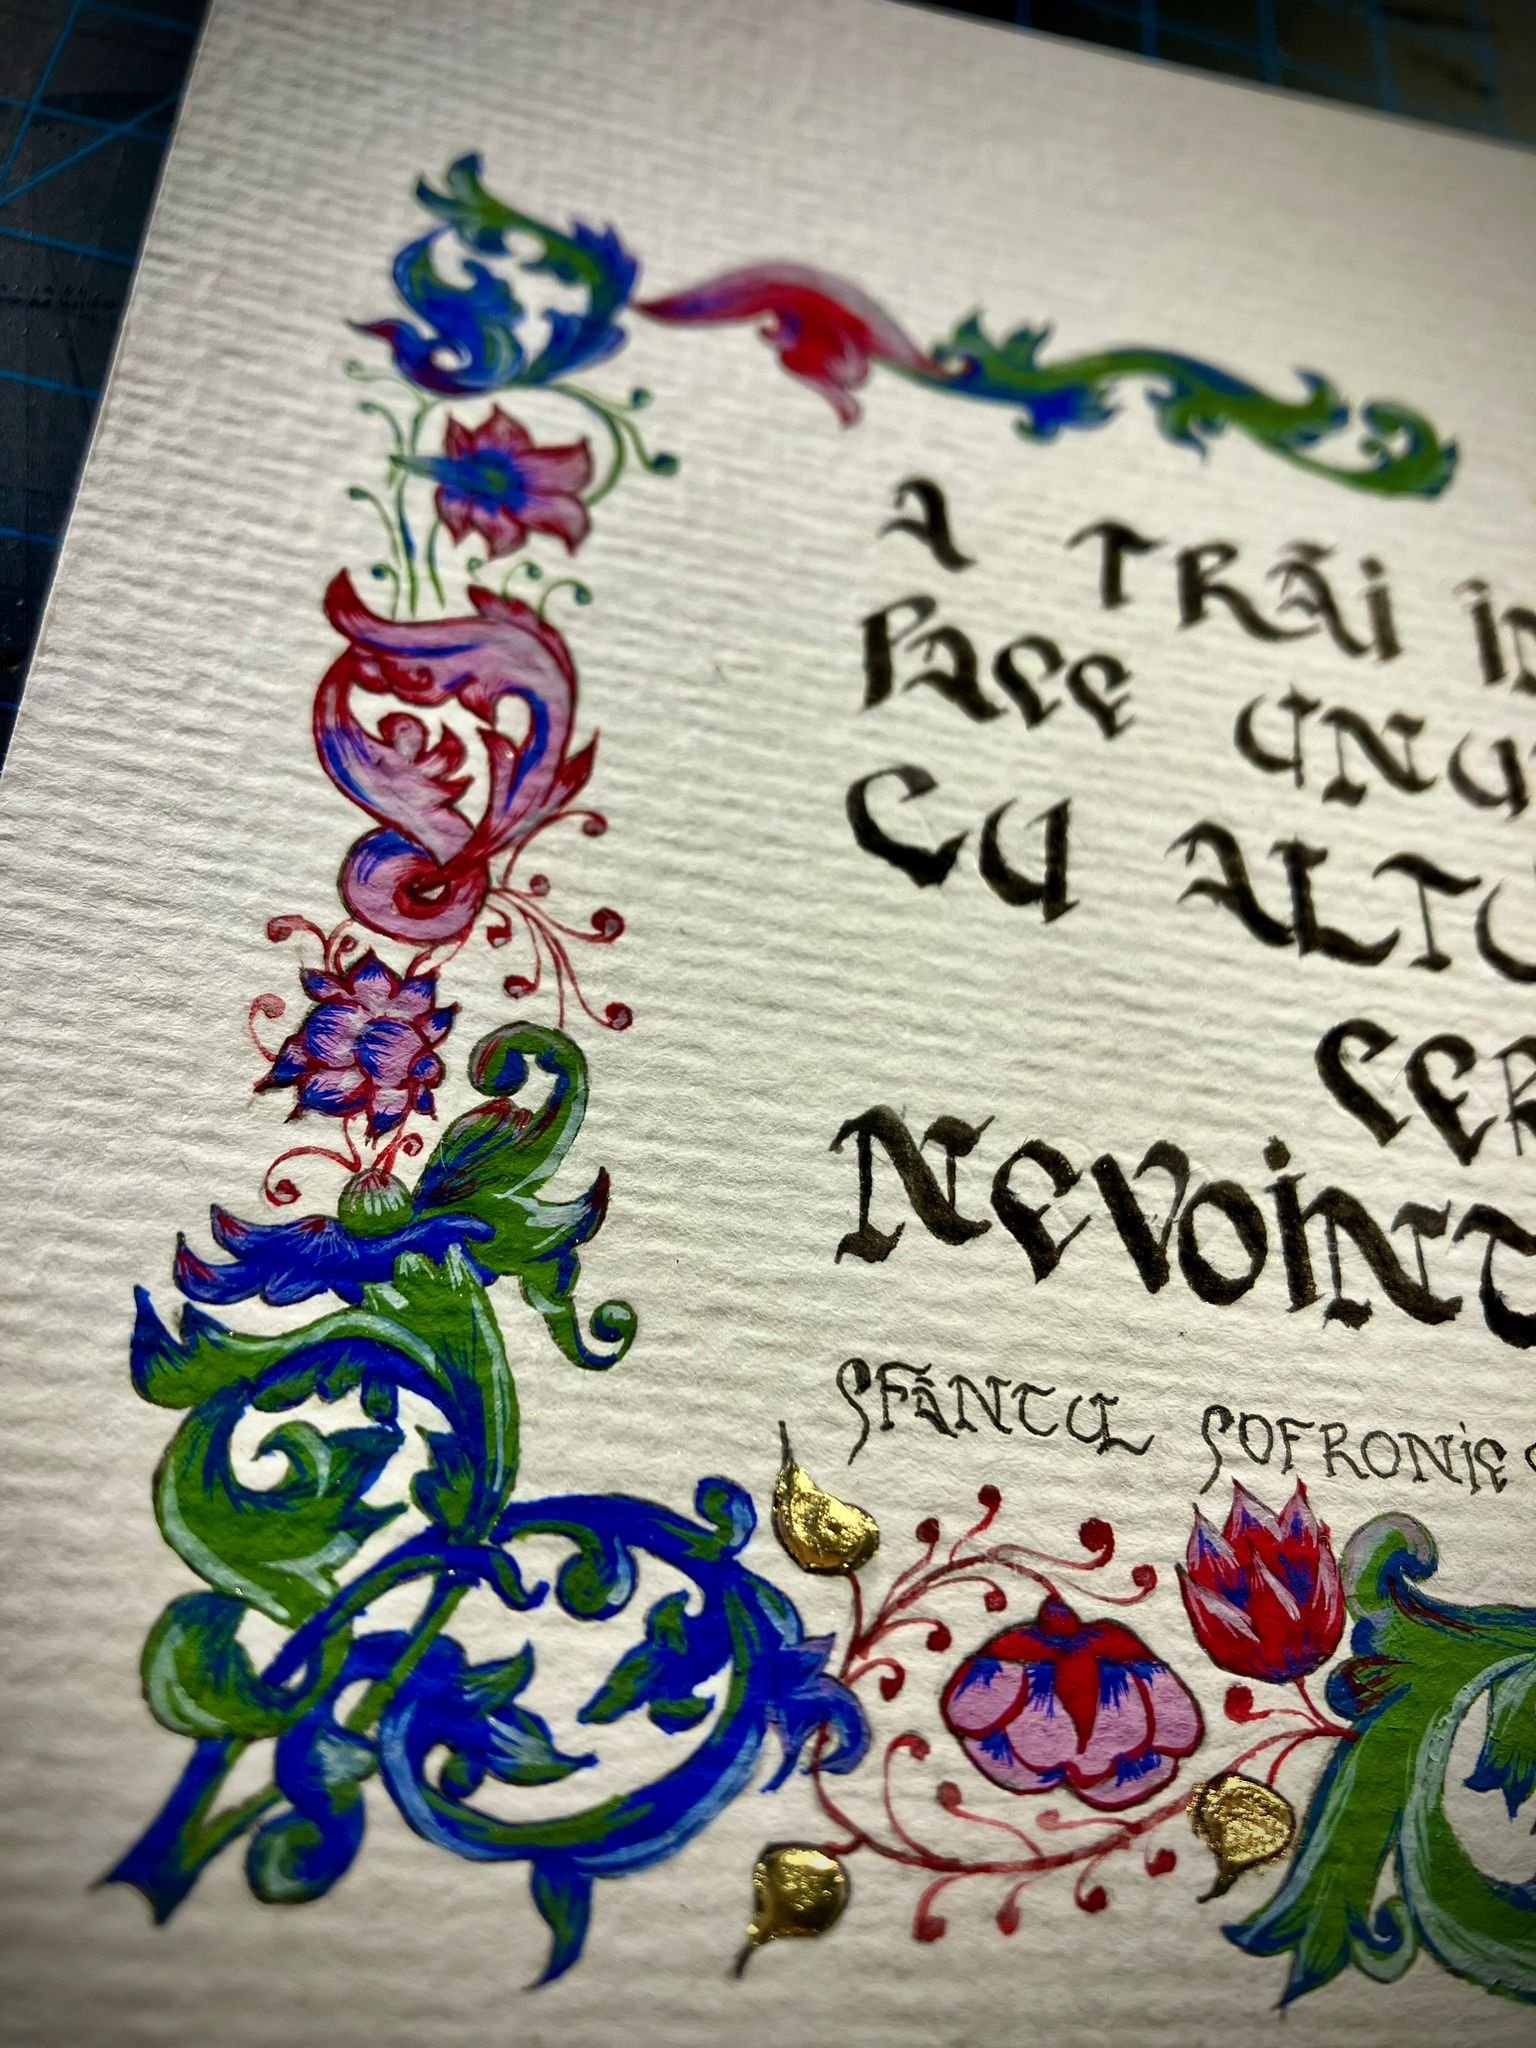 A TRĂI ÎN
PACE UNU
CU ALTU
CER
NEVOINȚ
SFÂNTUL SOFRONIE